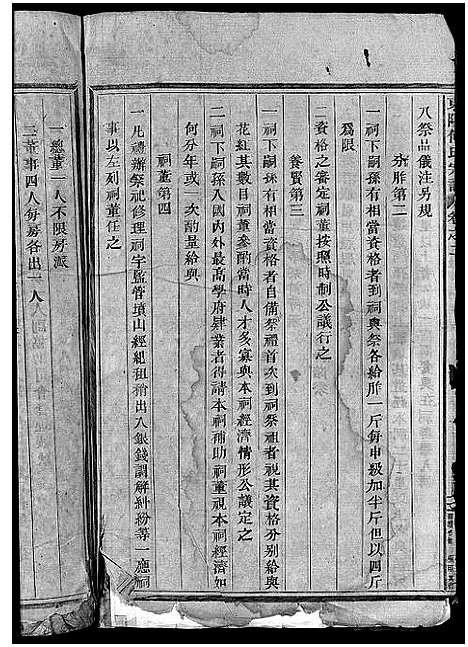 八祭品儀注另規
分胙第二
一祠下嗣孫有相當資格者到祠與祭各給胙一斤每申級加半斤但以四斤
爲限
二資格之審定祠董按照時制公議行之
養賢第三
一祠下嗣孫有相當資格者自備祭禮首次到祠祭祖者視其資格分別給與
花紅其數目祠董參酌當時人才多寡與本祠經濟情形公議定之
二祠下嗣孫入國內外最高學府肆業者得請本祠補助祠董視本祠經濟如
何分年或一次酌量給與
祠董第四
一凡禮辦祭祀修理祠宇監管墳山經組租稍出入銀錢調解糾紛等一應祠
事以左列祠董任之
一總董一人不限房派
二董事四人每房各出一人